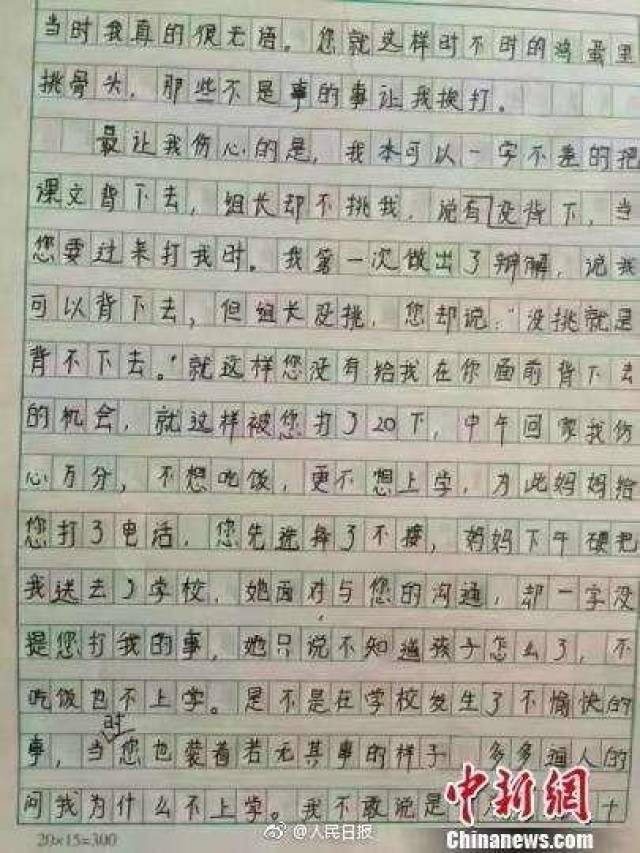 当时我真的很无语。您就这样时不时的鸡蛋里
挑骨头，那些不是事的事让我挨打。
最让我伤心的是，我本可以一字不差的把
课文背下去，组长却不挑我，说有没背下，当
您要过来打我时。我第一次做出了辩解，说我
可以背下去，但组长没挑，您却说："没挑就是
背不下去。"就这样您没有给我在你面前背下去
的机会，就这样被您打了20下，中午回家我伤
心万分，不想吃饭，更不想上学，为此妈妈给
您打了电话，您先选择了不接，妈妈下午硬把
我送去了学校，她面对与您的沟通，却一字没
提您打我的事，她只说不知道孩子怎么了，不
吃饭也不上学。是不是在学校发生了不愉快的
事，当时您也装着若无其事的样子 多多逼人的
问我为什么不上学。我不敢说是
20×15=300
@人民日报
中新网
Chinanews.com